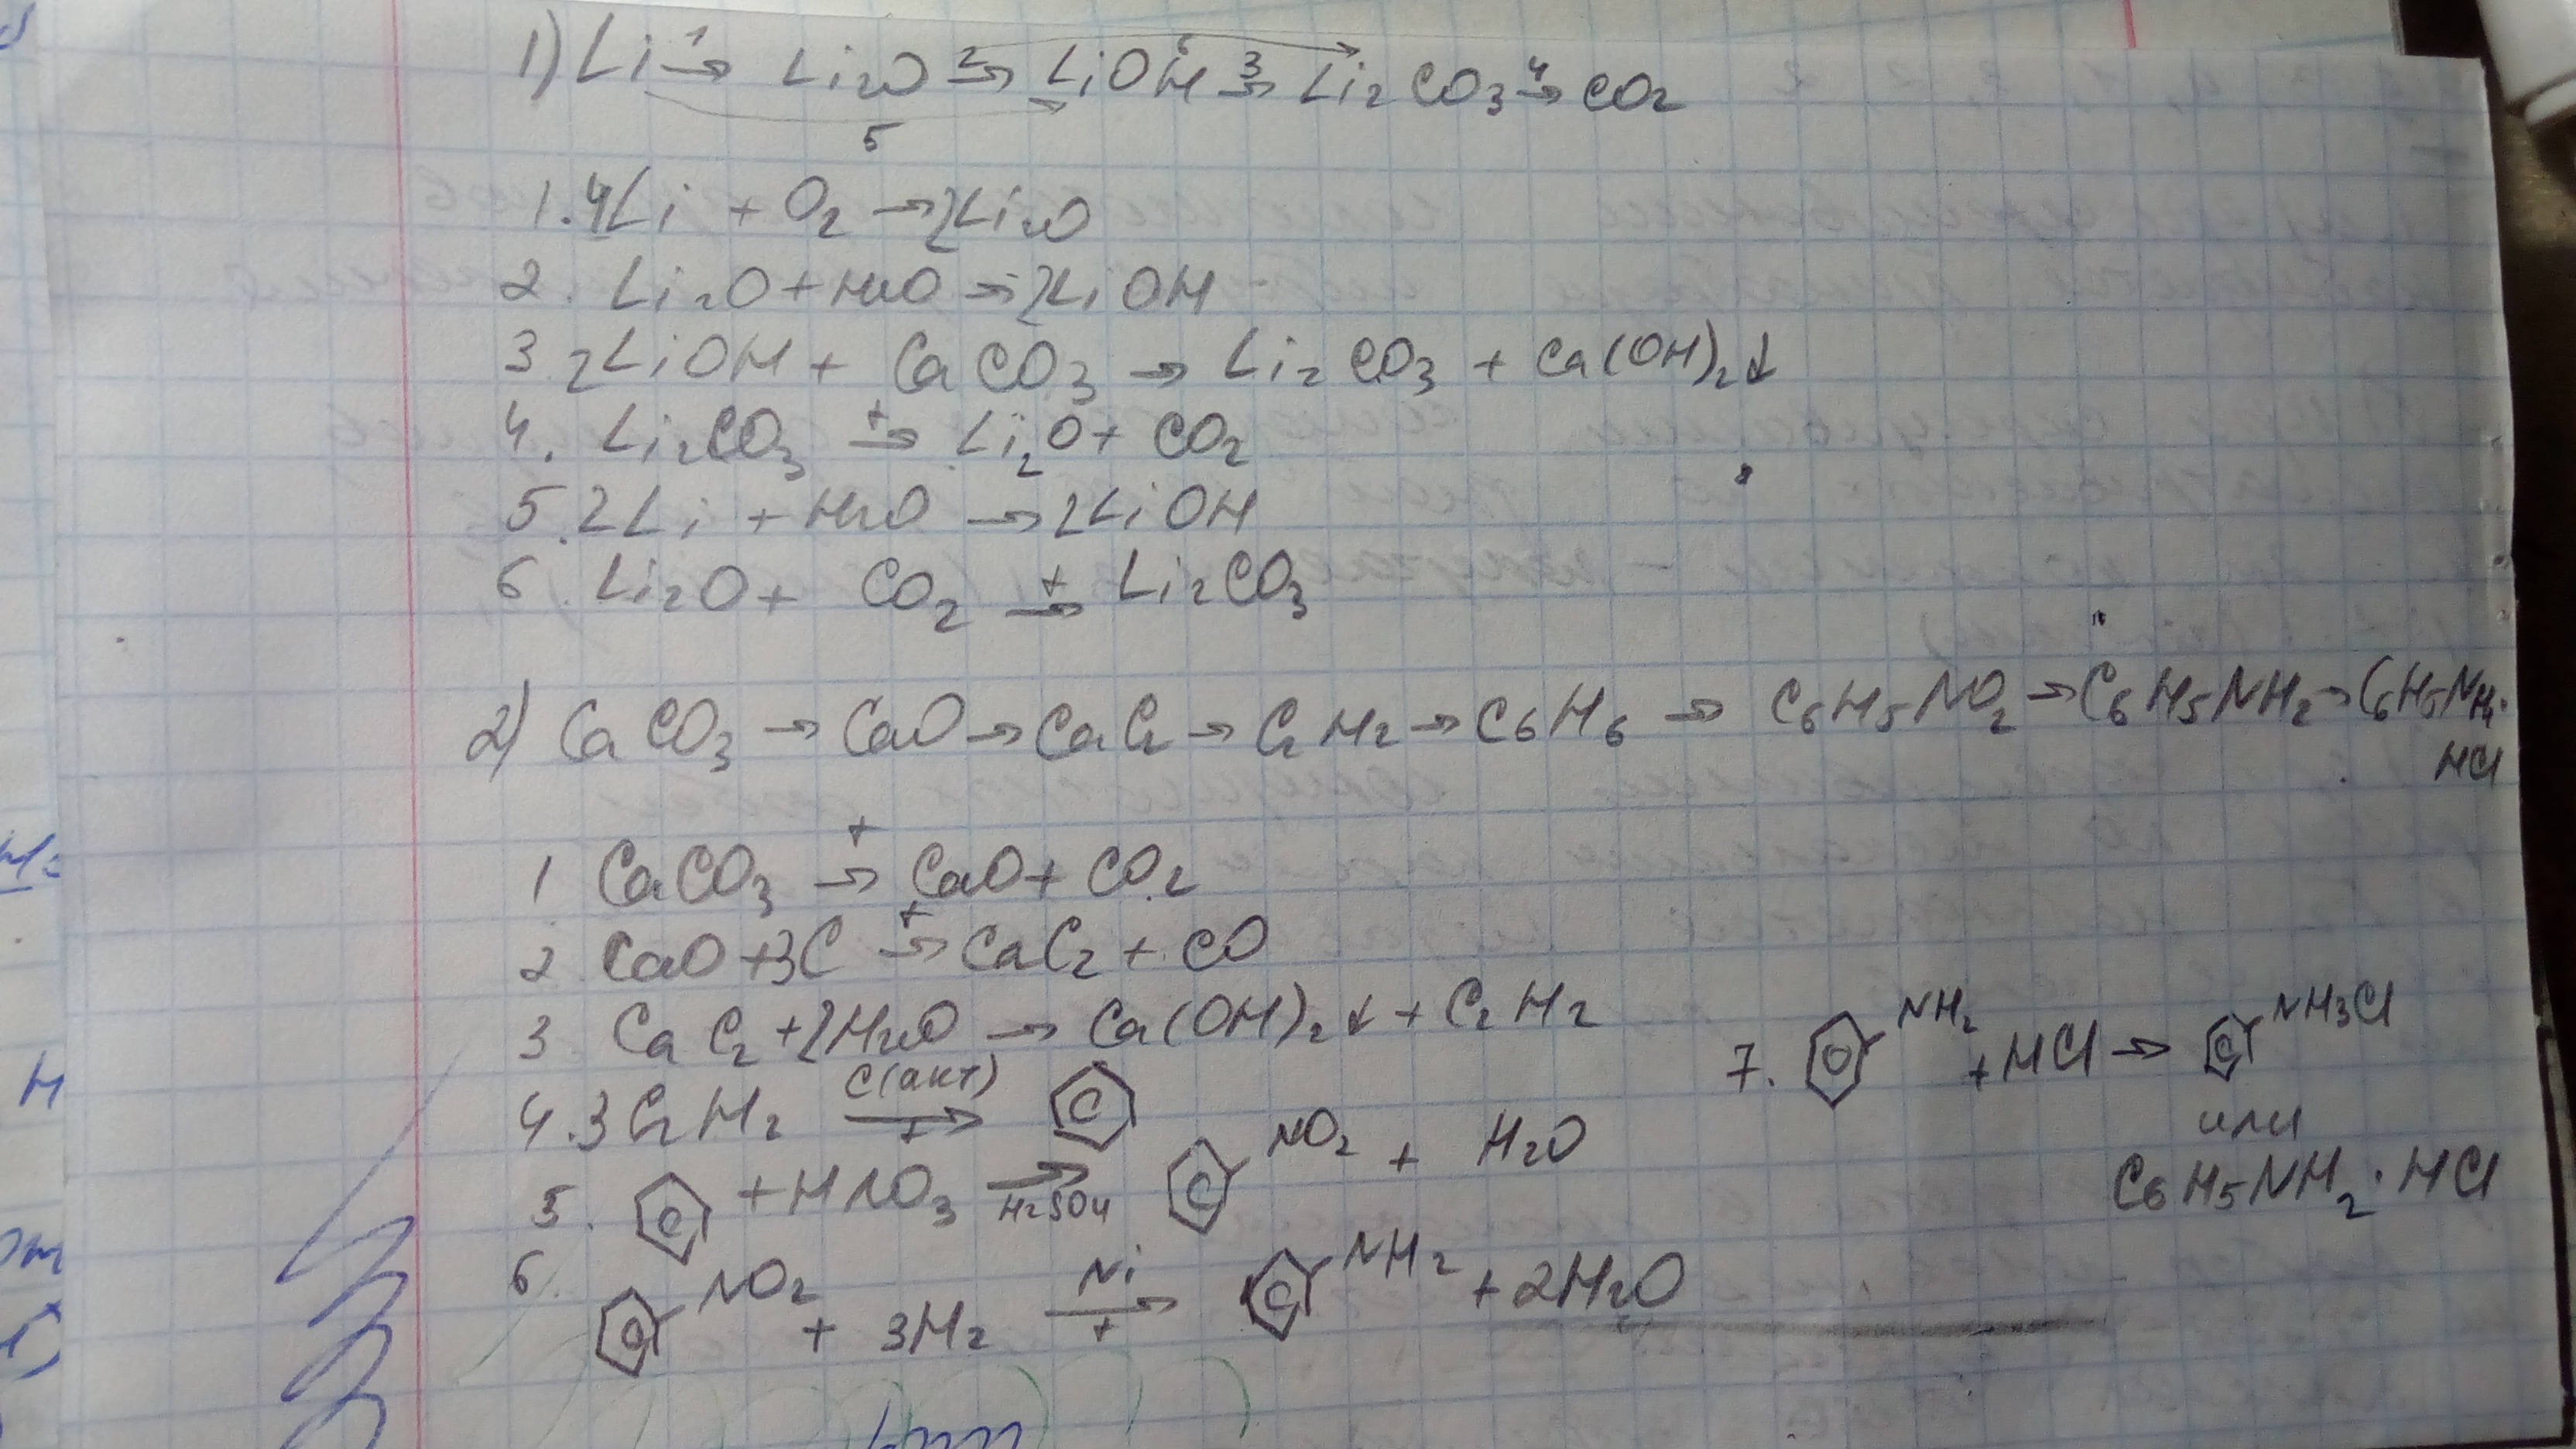 1) Li 1→ Li2O 2→ LiOH 3→ Li2CO3 4→ CO2
5
6
1. 4Li + O2 → 2Li2O
2. Li2O + H2O → 2LiOH
3. 2LiOH + CaCO3 → Li2CO3 + Ca(OH)2↓
4. Li2CO3 t→ Li2O + CO2
5. 2Li + H2O → 2LiOH
6. Li2O + CO2 t→ Li2CO3
2) CaCO3 → CaO → CaC2 → C2H2 → C6H6 → C6H5NO2 → C6H5NH2 → C6H5NH2·
HCl
1 CaCO3 t→ CaO + CO2
2 CaO + 3C t→ CaC2 + CO
3 CaC2 + 2H2O → Ca(OH)2↓ + C2H2
4. 3C2H2 C(акт) t→
5. + HNO3 H2SO4→ NO2 + H2O
6. NO2 + 3H2 Ni t→ NH2 + 2H2O
7. NH2 + HCl → NH3Cl
или
C6H5NH2·HCl